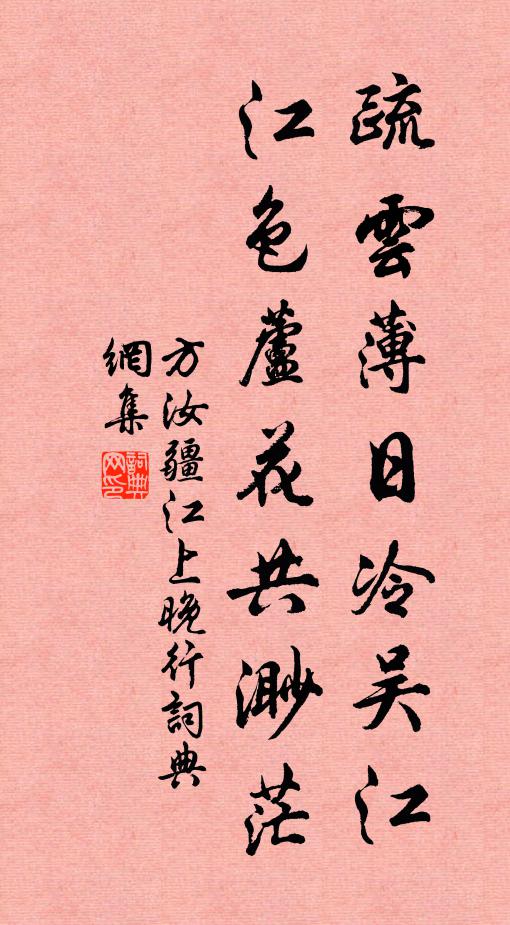 疏雲薄日冷吴江
江色蘆花共渺茫
方汝疆江上晚行詞典
網集
詞典網印